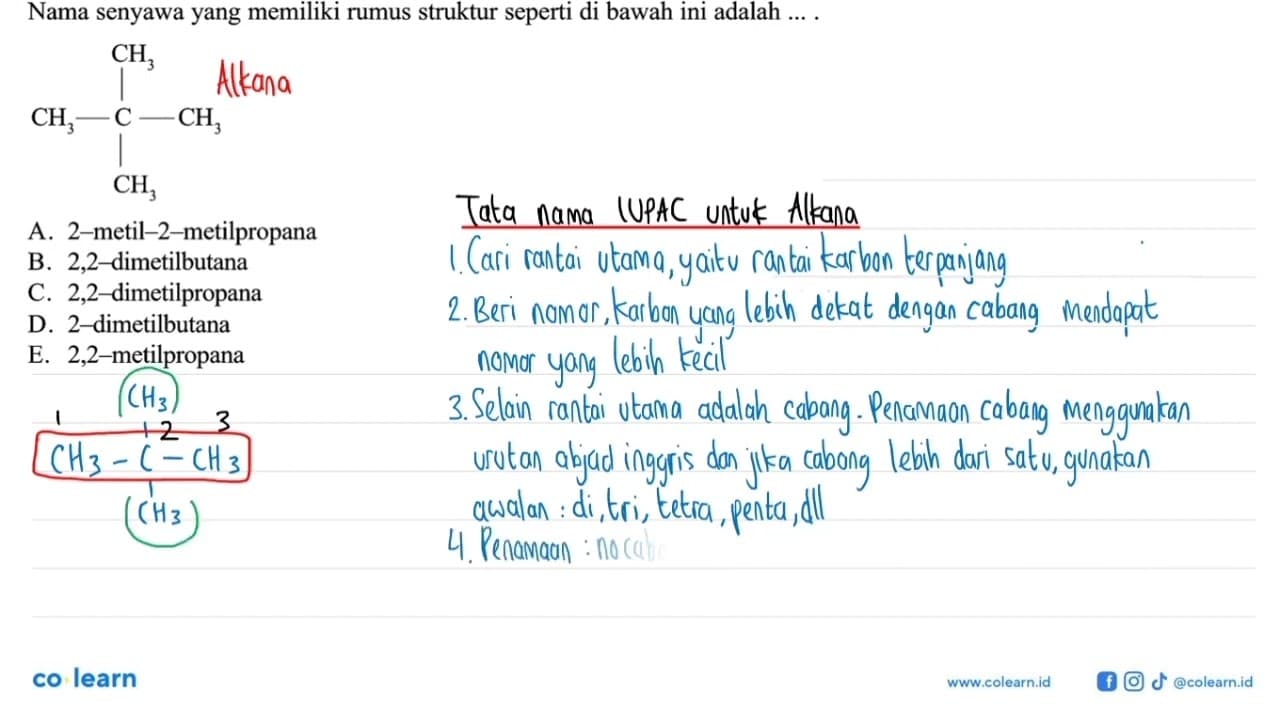 Nama senyawa yang memiliki rumus struktur seperti di bawah ini adalah ... .
CH3
Alkana
CH3 — C — CH3
CH3
A. 2–metil–2–metilpropana
B. 2,2–dimetilbutana
C. 2,2–dimetilpropana
D. 2–dimetilbutana
E. 2,2–metilpropana
(CH3)
1 2 3
CH3 - C - CH3
(CH3)
Tata nama IUPAC untuk Alkana
1. Cari rantai utama, yaitu rantai karbon terpanjang
2. Beri nomor, karbon yang lebih dekat dengan cabang mendapat
nomor yang lebih kecil
3. Selain rantai utama adalah cabang. Penamaan cabang menggunakan
urutan abjad inggris dan jika cabang lebih dari satu, gunakan
awalan : di, tri, tetra, penta, dll
4. Penamaan : no cab
co learn
www.colearn.id
@colearn.id